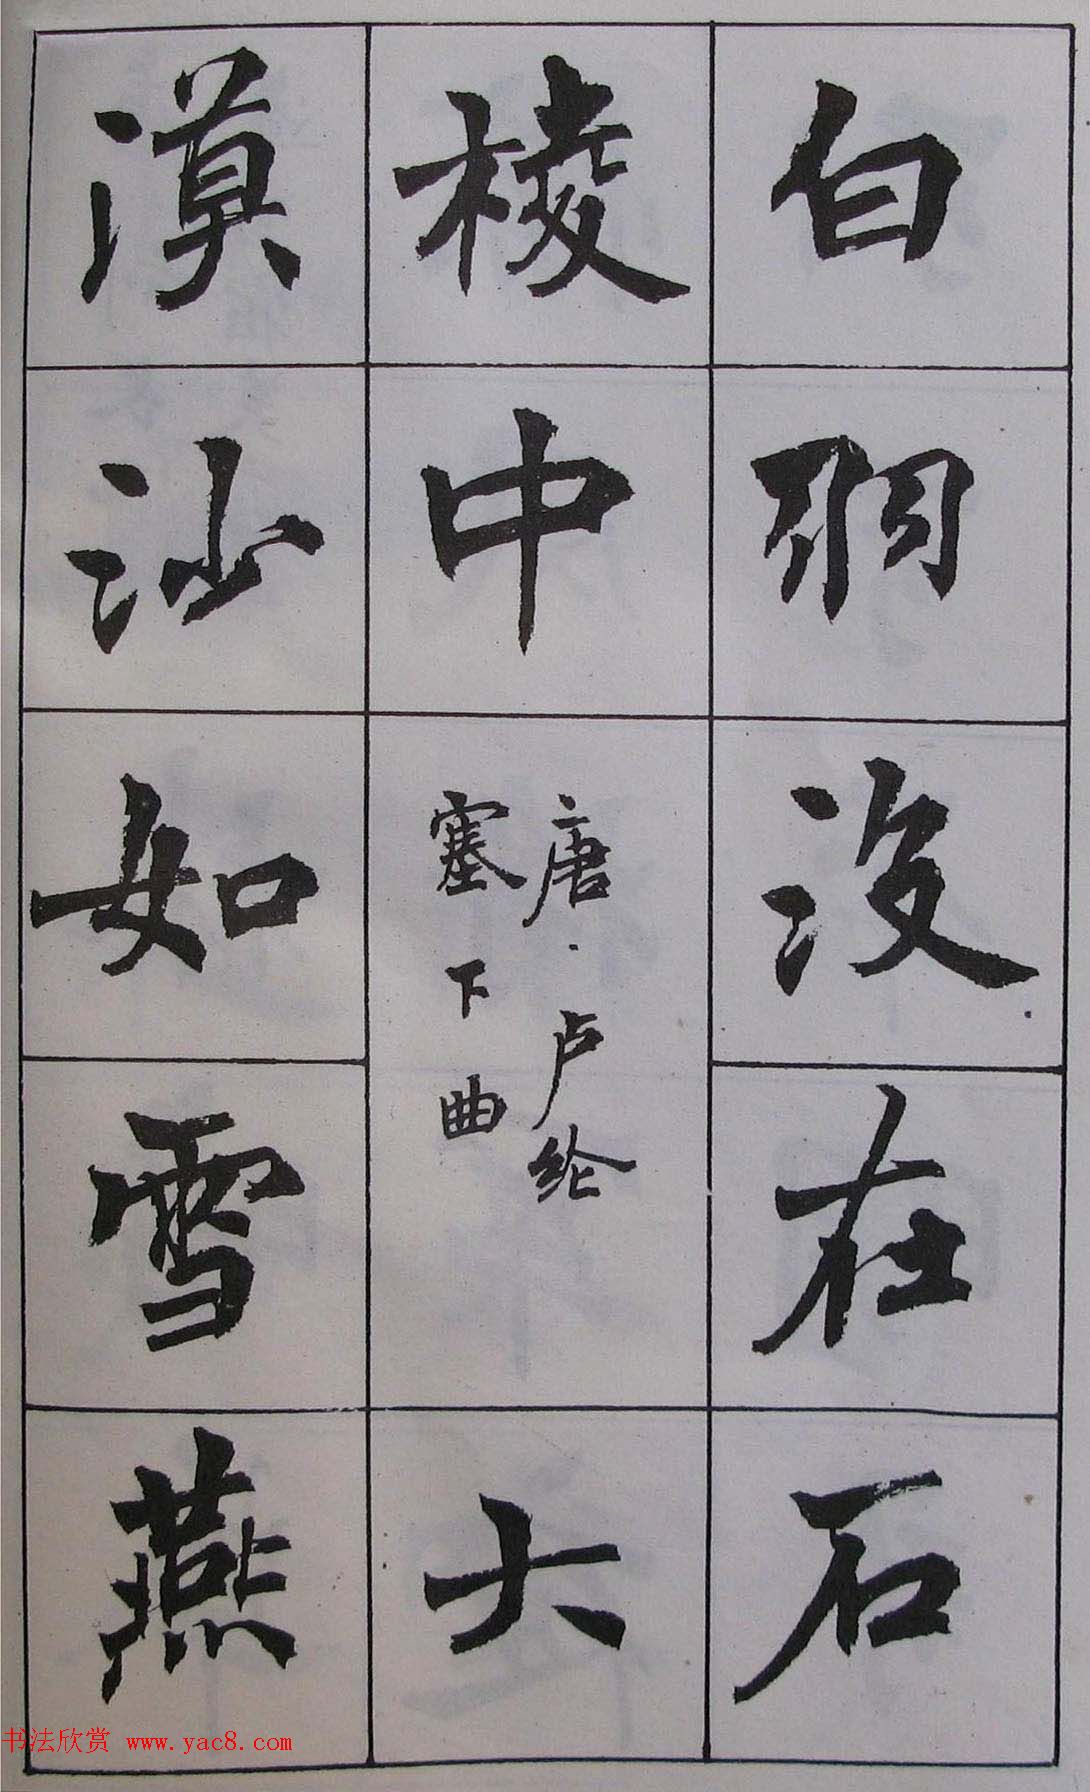 白羽没在石
棱中
唐·卢纶
塞下曲
大
漠沙如雪燕
书法欣赏 www.yac8.com